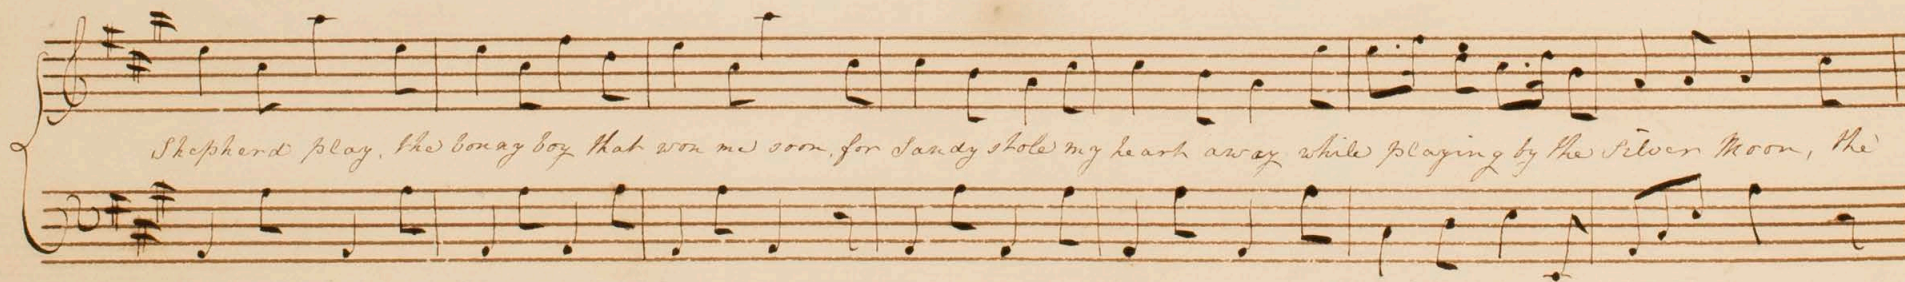 Shepherd play, the bonny boy that won me soon, for Sandy stole my heart away while playing by the Silver Moon, the